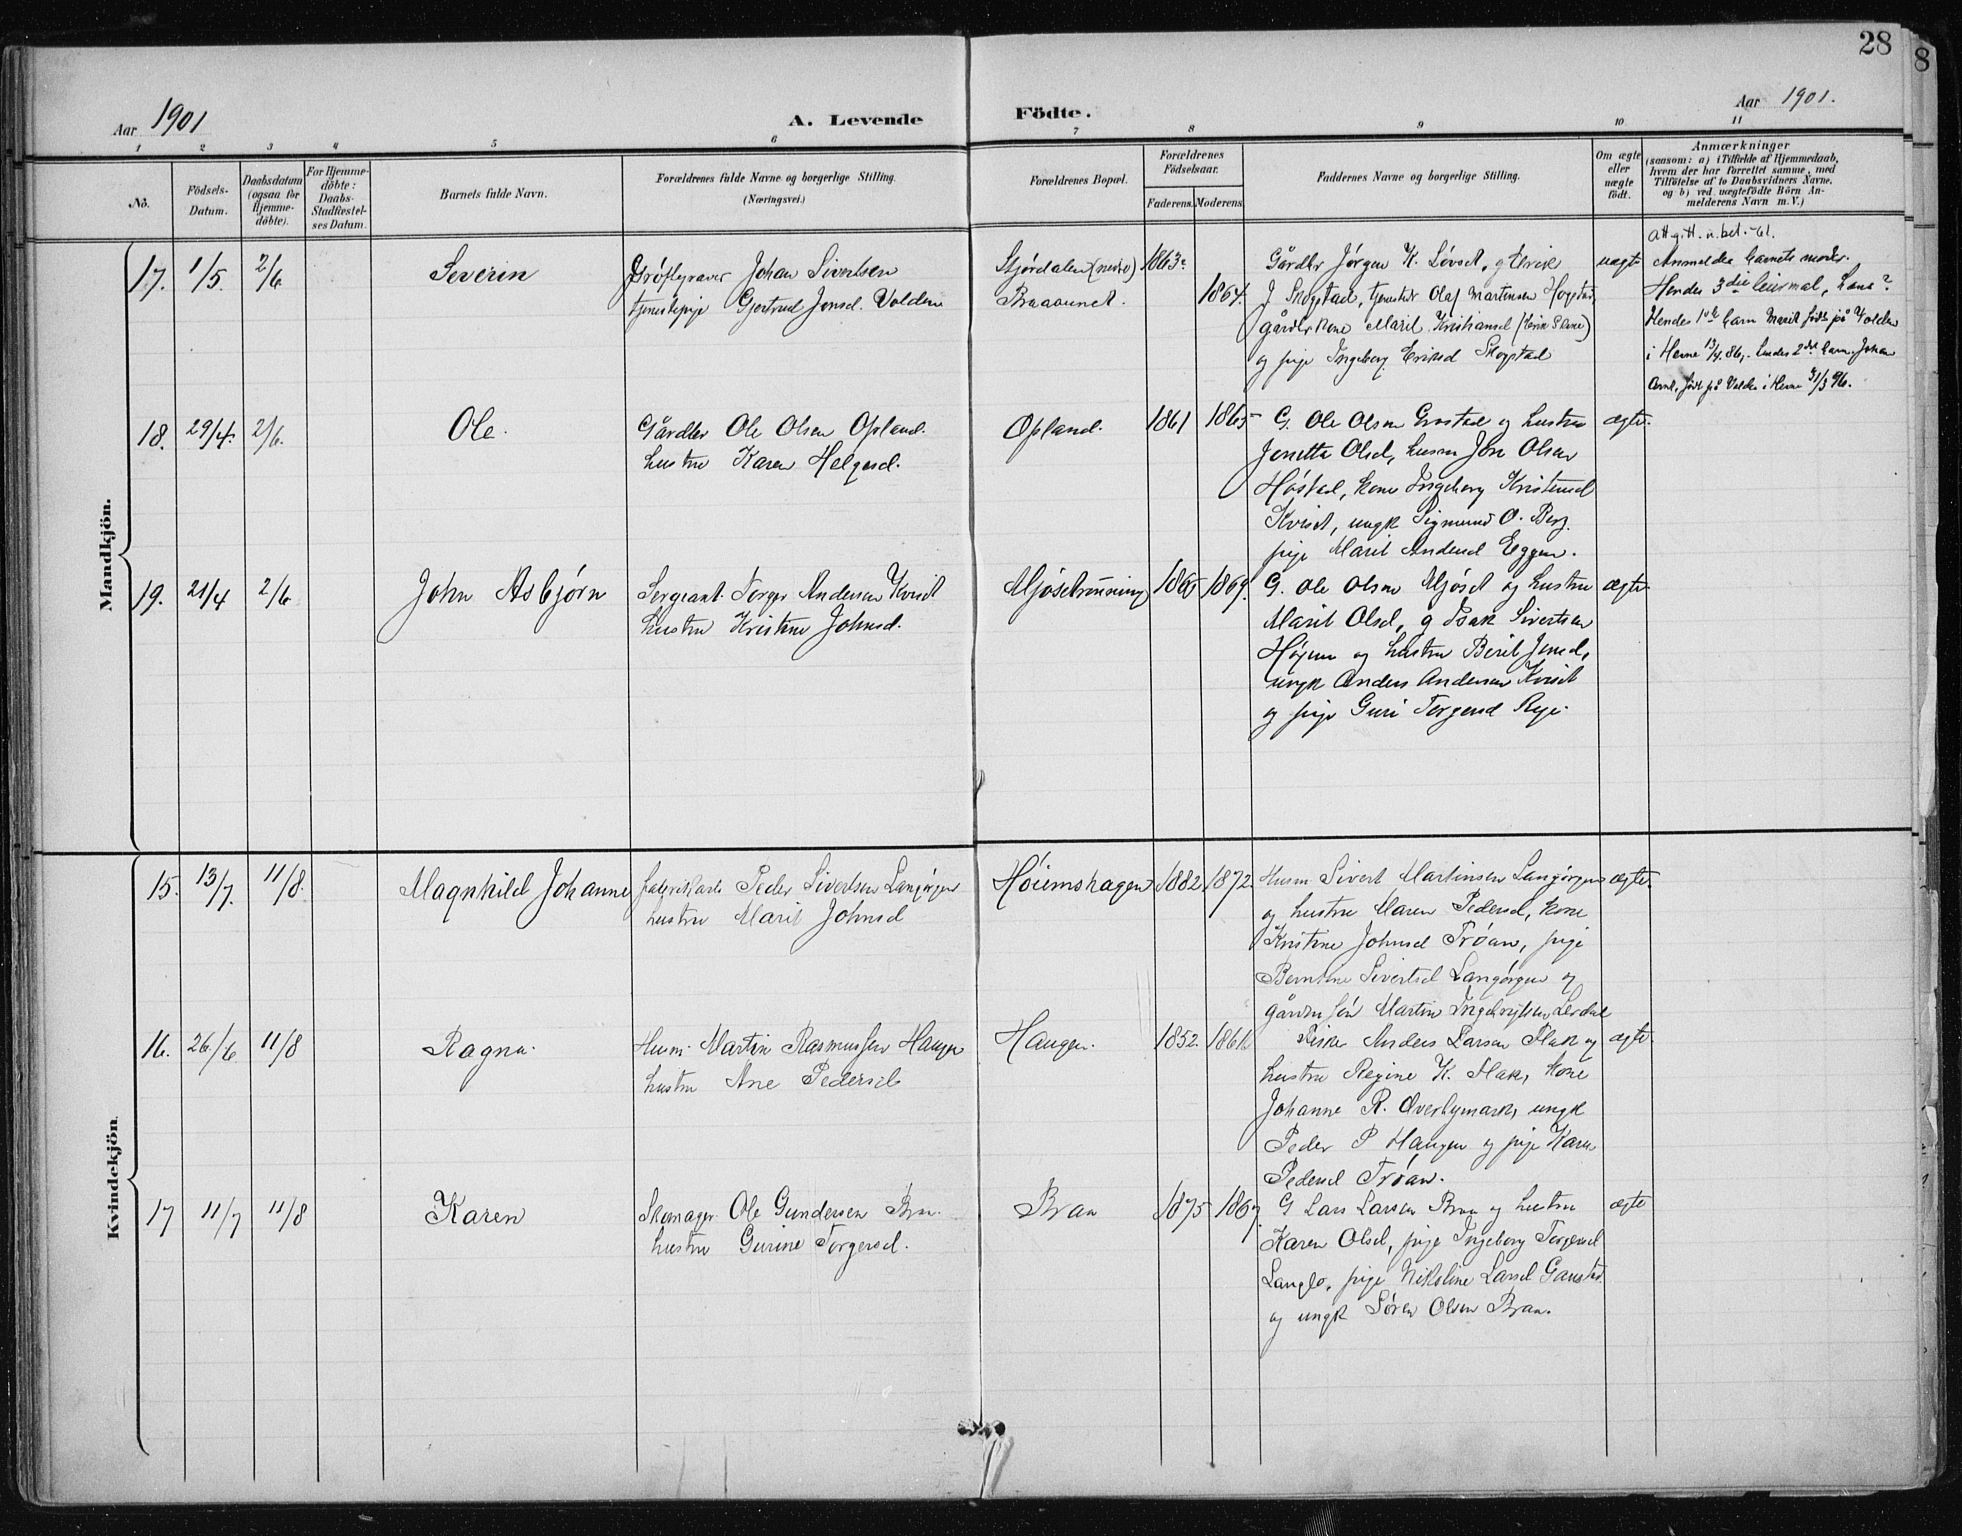 28
8
Aar 1901
A. Levende Födte.
Aar 1901.
1 2 3 4 5 6 7 8 9 10 11
No.
Födsels-
Datum.
Daabsdatum
(ogsaa for
Hjemme-
döbte).
For Hjemme-
döbte:
Daabs-
Stadfæstel-
ses Datum.
Barnets fulde Navn.
Forældrenes fulde Navne og borgerlige Stilling.
(Næringsvei.)
Forældrenes Bopæl.
Forældrenes
Födselsaar.
Faderens. Moderens.
Faddernes Navne og borgerlige Stilling.
Om ægte
eller
uægte
født.
Anmærkninger
(saasom: a) i Tilfælde af Hjemmedaab,
hvem der har forrettet samme, med
Tilföielse af to Daabsvidners Navne,
og b) ved uægtefödte Börn An-
melderens Navn m. V.)
Mandkjön.
17. 1/5. 2/6. Severin
Grøftegraver Johan Sivertsen
tjenestepige Gjertrud Jonsd. Volden
Stjørdalen (nedre)
Braaunet.
1863.
1864.
Gårdbr Jørgen K. Løvset, g Erik
J Skogstad, tjenestkr Olaf Martinsen Hogstad,
gårdbrkone Marit Kristiansd
og pige Ingeborg Eriksd Skogstad
uægte
Att. g. tt. u. bet. -61.
Anmelder barnets moder.
Hendes 3die leiermål, hans?
Hendes 1ste barn Marit født på Volden
i Hevne 13/4 86, hendes 2det barn Johan
Arnt, født på Volden i Hevne 31/3 96.
18. 29/4. 2/6. Ole.
Gårdbr Ole Olsen Opland.
hustru Karen Helgesd.
Opland.
1861 1865
G. Ole Olsen Grostad og hustru
Jonetta Olsd, husm Jon Olsen
Høstad, kone Ingeborg Kristensd
Kviset, ungk Sigmund O. Berg.
pige Marit Andersd Eggen.
ægte.
19. 21/4 2/6 John Asbjørn
Sergeant Torger Andersen Kviset
hustru Kristine Johnsd.
Mjøsetrønning
1865 1869.
G. Ole Olsen Mjøset og hustru
Marit Olsd, g Isak Sivertsen
Høgen og hustru Berit Jonsd,
ungk Anders Andersen Kviset
og pige Guri Torgersd Rye.
ægte.
Kvindekjön.
15. 13/7. 11/8. Magnhild Johanne
fabrikkarb Peder Sivertsen Langørgen
hustru Marit Johnsd
Høiemshagen
1882. 1872.
Husm Sivert Martinsen Langørgen
og hustru Maren Pedersd, kone
Kristine Johnsd Trøan, pige
Berntine Sivertsd Langørgen og
gårdbr søn Martin Ingebrigtsen Lerdal
ægte.
16. 26/6 11/8 Ragna.
Husm. Martin Rasmussen Haugen
hustru Ane Pedersd
Haugen.
1852. 1861.
Anders Larsen Flak og
hustru Regine K. Flak, kone
Johanne R. Øverbymark, ungk
Peder P Haugen og pige Karen
Pedersd Trøan.
ægte.
17 11/7 11/8 Karen
Skomager Ole Gundersen Braa.
hustru Gurine Torgersd.
Braa
1875 1867.
G Lars Larsen Braa og hustru
Karen Olsd, pige Ingeborg Torgersd
Langlo, pige Nikoline Larsd Gaustad
og ungk Søren Olsen Braa.
ægte